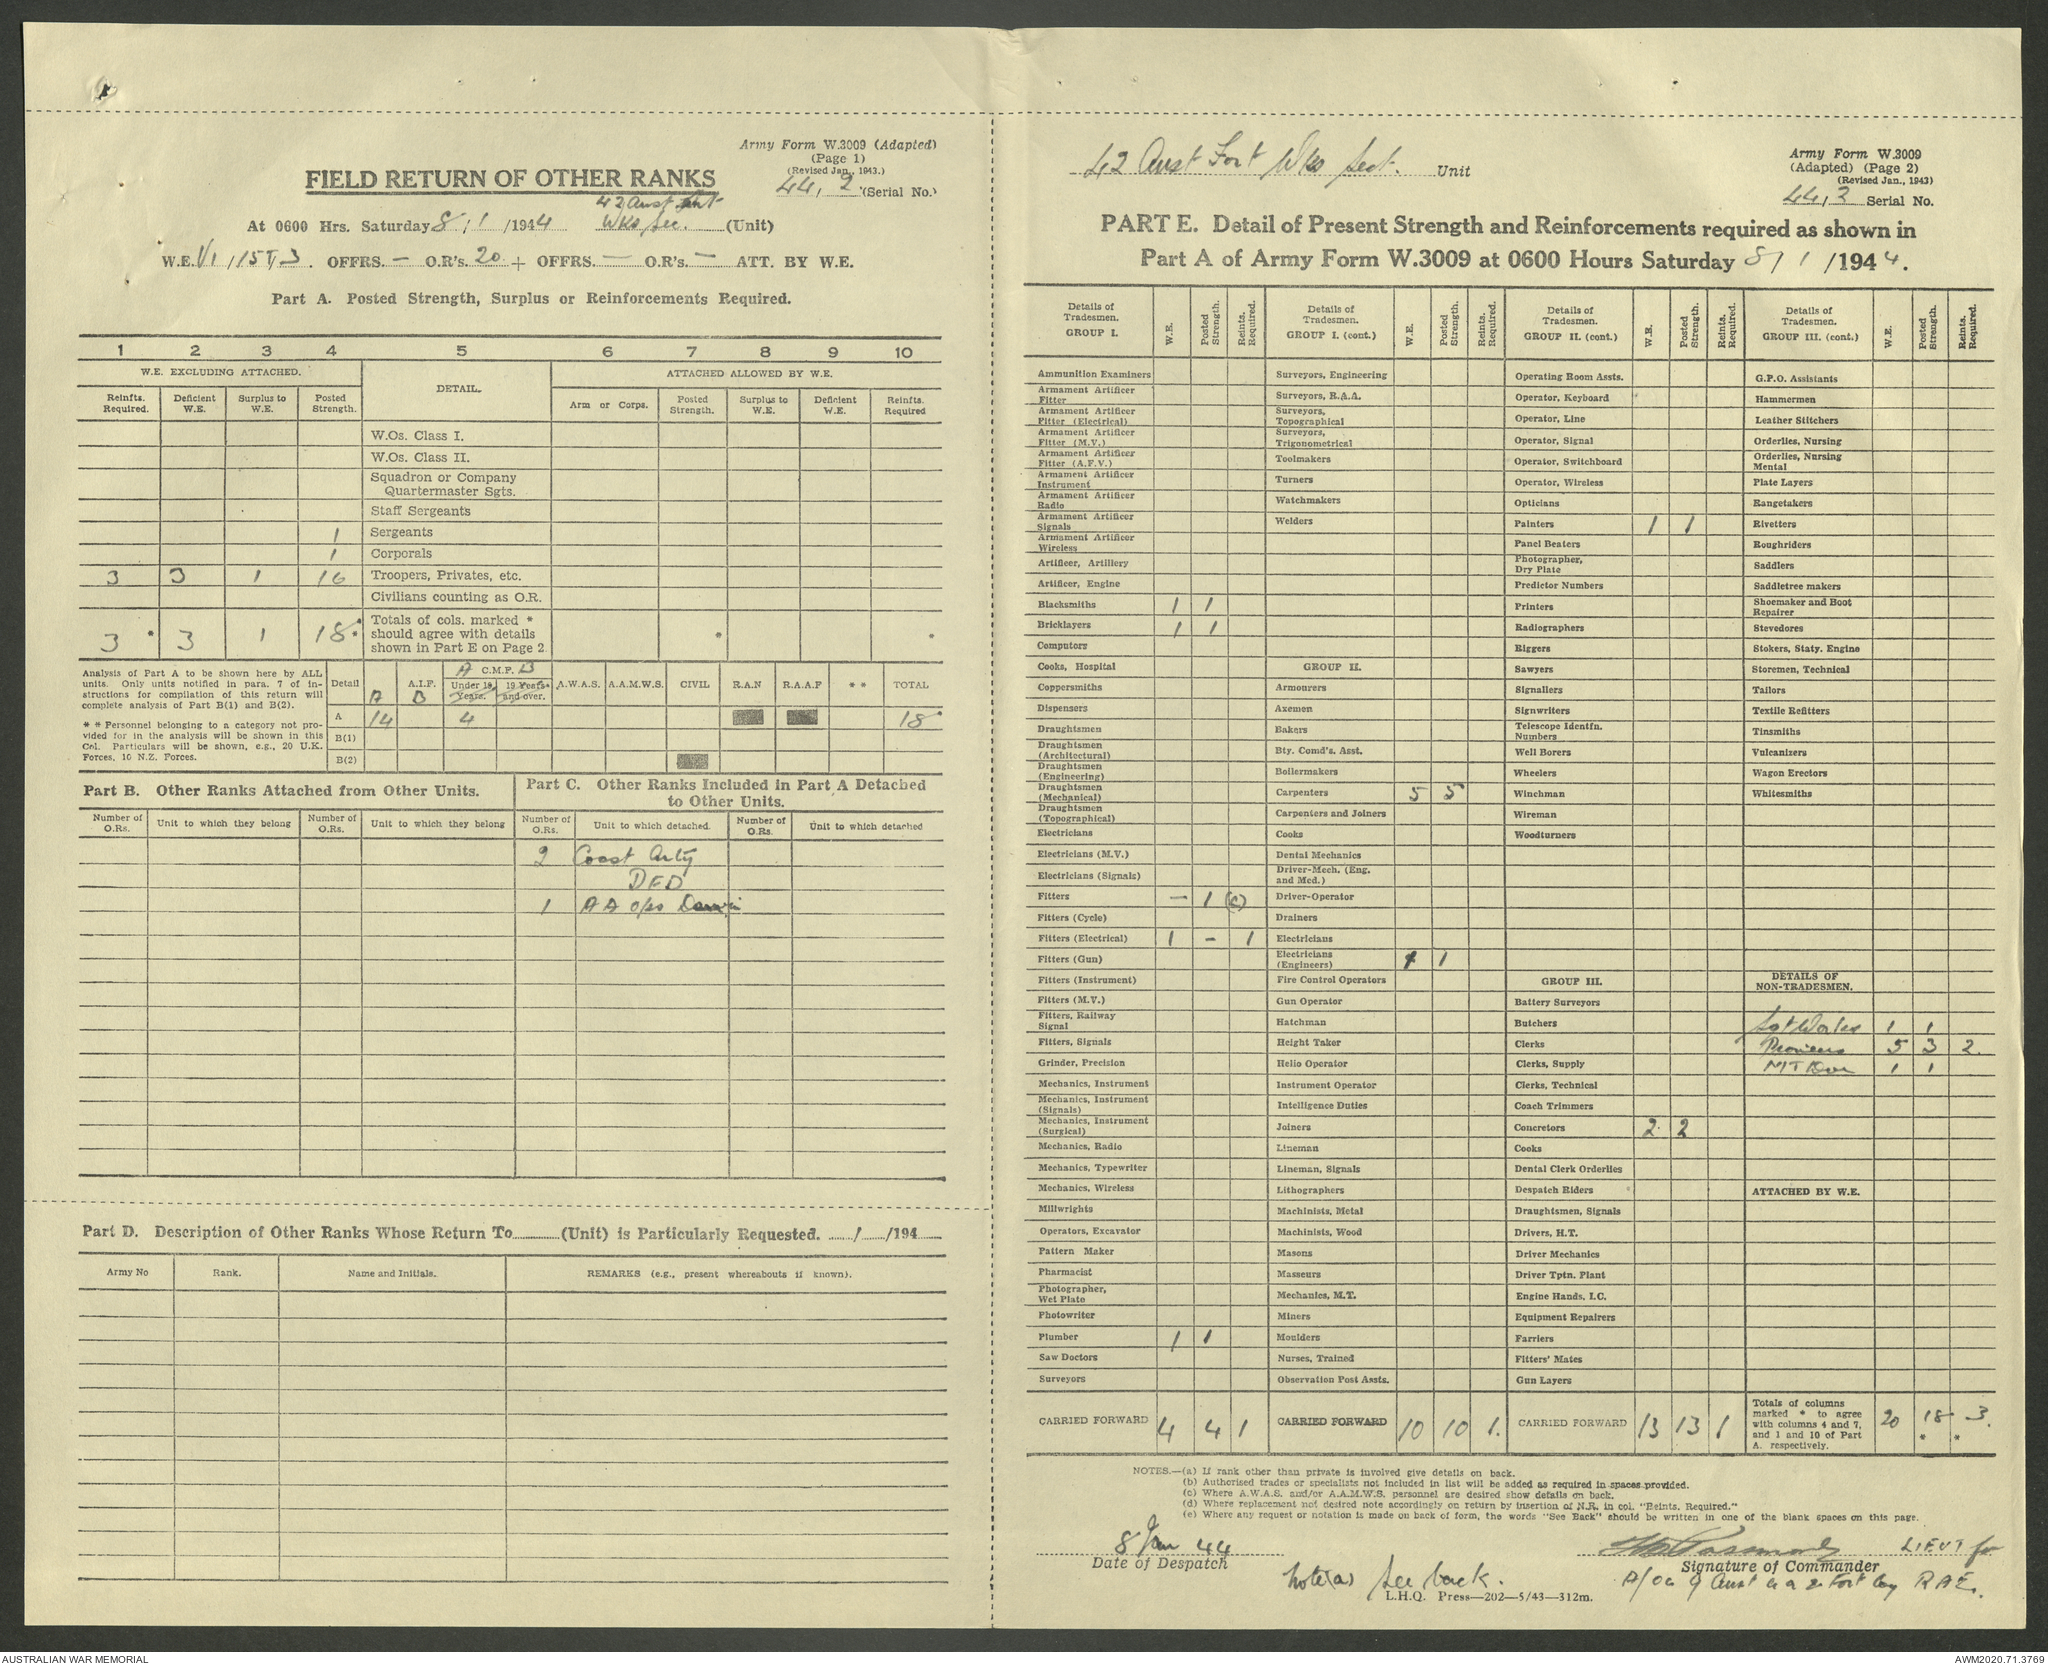 Army Form W.3009 (Adapted)
(Page 1)
(Revised Jan., 1943.)
44, 2 (Serial No.)
FIELD RETURN OF OTHER RANKS
42 Aust Fort
At 0600 Hrs. Saturday 8/1/1944 Wks Sec. (Unit)
W.E. VI/15T/3. OFFRS. — O.R's. 20 + OFFRS. — O.R's. — ATT. BY W.E.
Part A. Posted Strength, Surplus or Reinforcements Required.
1 2 3 4 5 6 7 8 9 10
W.E. EXCLUDING ATTACHED. DETAIL. ATTACHED ALLOWED BY W.E.
Reinfts. Required. Deficient W.E. Surplus to W.E. Posted Strength. Arm or Corps. Posted Strength. Surplus to W.E. Deficient W.E. Reinfts. Required
W.Os. Class I.
W.Os. Class II.
Squadron or Company
Quartermaster Sgts.
Staff Sergeants
1 Sergeants
1 Corporals
3 3 1 16 Troopers, Privates, etc.
Civilians counting as O.R.
3 * 3 1 18 * Totals of cols. marked *
should agree with details
shown in Part E on Page 2. * *
Analysis of Part A to be shown here by ALL
units. Only units notified in para. 7 of in-
structions for compilation of this return will
complete analysis of Part B(1) and B(2).
* * Personnel belonging to a category not pro-
vided for in the analysis will be shown in this
Col. Particulars will be shown, e.g., 20 U.K.
Forces, 10 N.Z. Forces.
Detail A.I.F. A B C.M.F. A B Under 19 Years. 19 Years and over. A.W.A.S. A.A.M.W.S. CIVIL R.A.N R.A.A.F * * TOTAL
A 14 4 18*
B(1)
B(2)
Part B. Other Ranks Attached from Other Units.
Number of O.Rs. Unit to which they belong Number of O.Rs. Unit to which they belong
Part C. Other Ranks Included in Part A Detached
to Other Units.
Number of O.Rs. Unit to which detached. Number of O.Rs. Unit to which detached
2 Coast Arty
DFD
1 AA Ops Darwin
Part D. Description of Other Ranks Whose Return To (Unit) is Particularly Requested. / /194
Army No Rank. Name and Initials. REMARKS (e.g., present whereabouts if known).
42 Aust Fort Wks Sect. Unit
Army Form W.3009
(Adapted) (Page 2)
(Revised Jan., 1943)
44, 2 Serial No.
PART E. Detail of Present Strength and Reinforcements required as shown in
Part A of Army Form W.3009 at 0600 Hours Saturday 8/1/1944.
Details of Tradesmen. GROUP I. W.E. Posted Strength. Reints. Required.
Ammunition Examiners
Armament Artificer Fitter
Armament Artificer Fitter (Electrical)
Armament Artificer Fitter (M.V.)
Armament Artificer Fitter (A.F.V.)
Armament Artificer Instrument
Armament Artificer Radio
Armament Artificer Signals
Armament Artificer Wireless
Artificer, Artillery
Artificer, Engine
Blacksmiths 1 1
Bricklayers 1 1
Computors
Cooks, Hospital
Coppersmiths
Dispensers
Draughtsmen
Draughtsmen (Architectural)
Draughtsmen (Engineering)
Draughtsmen (Mechanical)
Draughtsmen (Topographical)
Electricians
Electricians (M.V.)
Electricians (Signals)
Fitters — 1 (c)
Fitters (Cycle)
Fitters (Electrical) 1 - 1
Fitters (Gun)
Fitters (Instrument)
Fitters (M.V.)
Fitters, Railway Signal
Fitters, Signals
Grinder, Precision
Mechanics, Instrument
Mechanics, Instrument (Signals)
Mechanics, Instrument (Surgical)
Mechanics, Radio
Mechanics, Typewriter
Mechanics, Wireless
Millwrights
Operators, Excavator
Pattern Maker
Pharmacist
Photographer, Wet Plate
Photowriter
Plumber 1 1
Saw Doctors
Surveyors
CARRIED FORWARD 4 4 1
Details of Tradesmen. GROUP I. (cont.) W.E. Posted Strength. Reints. Required.
Surveyors, Engineering
Surveyors, R.A.A.
Surveyors, Topographical
Surveyors, Trigonometrical
Toolmakers
Turners
Watchmakers
Welders
GROUP II.
Armourers
Axemen
Bakers
Bty. Comd's. Asst.
Boilermakers
Carpenters 5 5
Carpenters and Joiners
Cooks
Dental Mechanics
Driver-Mech. (Eng. and Med.)
Driver-Operator
Drainers
Electricians
Electricians (Engineers) 1 1
Fire Control Operators
Gun Operator
Hatchman
Height Taker
Helio Operator
Instrument Operator
Intelligence Duties
Joiners
Lineman
Lineman, Signals
Lithographers
Machinists, Metal
Machinists, Wood
Masons
Masseurs
Mechanics, M.T.
Miners
Moulders
Nurses, Trained
Observation Post Assts.
CARRIED FORWARD 10 10 1.
Details of Tradesmen. GROUP II. (cont.) W.E. Posted Strength. Reints. Required.
Operating Room Assts.
Operator, Keyboard
Operator, Line
Operator, Signal
Operator, Switchboard
Operator, Wireless
Opticians
Painters 1 1
Panel Beaters
Photographer, Dry Plate
Predictor Numbers
Printers
Radiographers
Riggers
Sawyers
Signallers
Signwriters
Telescope Identfn. Numbers
Well Borers
Wheelers
Winchman
Wireman
Woodturners
GROUP III.
Battery Surveyors
Butchers
Clerks
Clerks, Supply
Clerks, Technical
Coach Trimmers
Concretors 2 2
Cooks
Dental Clerk Orderlies
Despatch Riders
Draughtsmen, Signals
Drivers, H.T.
Driver Mechanics
Driver Tptn. Plant
Engine Hands, I.C.
Equipment Repairers
Farriers
Fitters' Mates
Gun Layers
CARRIED FORWARD 13 13 1
Details of Tradesmen. GROUP III. (cont.) W.E. Posted Strength. Reints. Required.
G.P.O. Assistants
Hammermen
Leather Stitchers
Orderlies, Nursing
Orderlies, Nursing Mental
Plate Layers
Rangetakers
Rivetters
Roughriders
Saddlers
Saddletree makers
Shoemaker and Boot Repairer
Stevedores
Stokers, Staty. Engine
Storemen, Technical
Tailors
Textile Refitters
Tinsmiths
Vulcanizers
Wagon Erectors
Whitesmiths
DETAILS OF
NON-TRADESMEN.
Sgt Works 1 1
Pioneers 5 3 2.
MT Dvr 1 1
ATTACHED BY W.E.
Totals of columns
marked * to agree
with columns 4 and 7,
and 1 and 10 of Part
A. respectively. 20 18 * 3. *
NOTES.—(a) If rank other than private is involved give details on back.
(b) Authorised trades or specialists not included in list will be added as required in spaces provided.
(c) Where A.W.A.S. and/or A.A.M.W.S. personnel are desired show details on back.
(d) Where replacement not desired note accordingly on return by insertion of N.R. in col. "Reints. Required."
(e) Where any request or notation is made on back of form, the words "See Back" should be written in one of the blank spaces on this page.
8 Jan 44
Date of Despatch
LIEUT for
Signature of Commander
Note(a) See back.
A/OC 9 Aust Fort Coy RAE.
L.H.Q. Press—202—5/43—312m.
AUSTRALIAN WAR MEMORIAL
AWM2020.71.3769